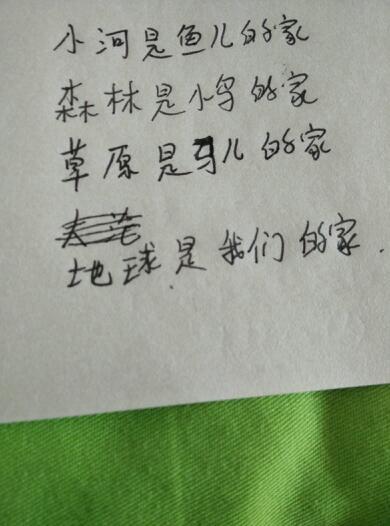 小河是鱼儿的家
森林是小鸟的家
草原是马儿的家
地球是我们的家.